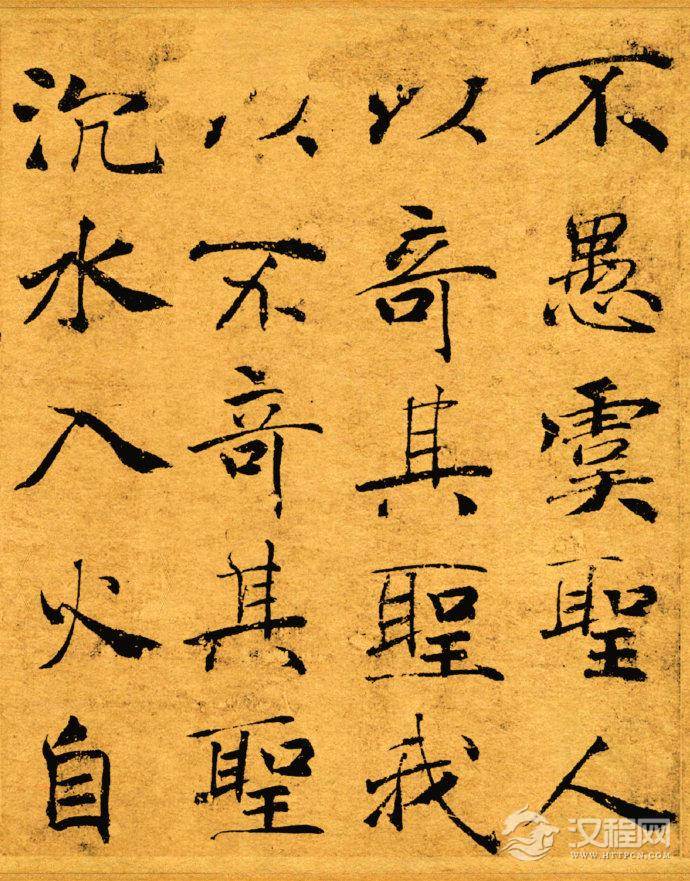 不愚虞聖人
以竒其聖我
以不竒其聖
沉水入火自
汉程网
WWW.HTTPCN.COM